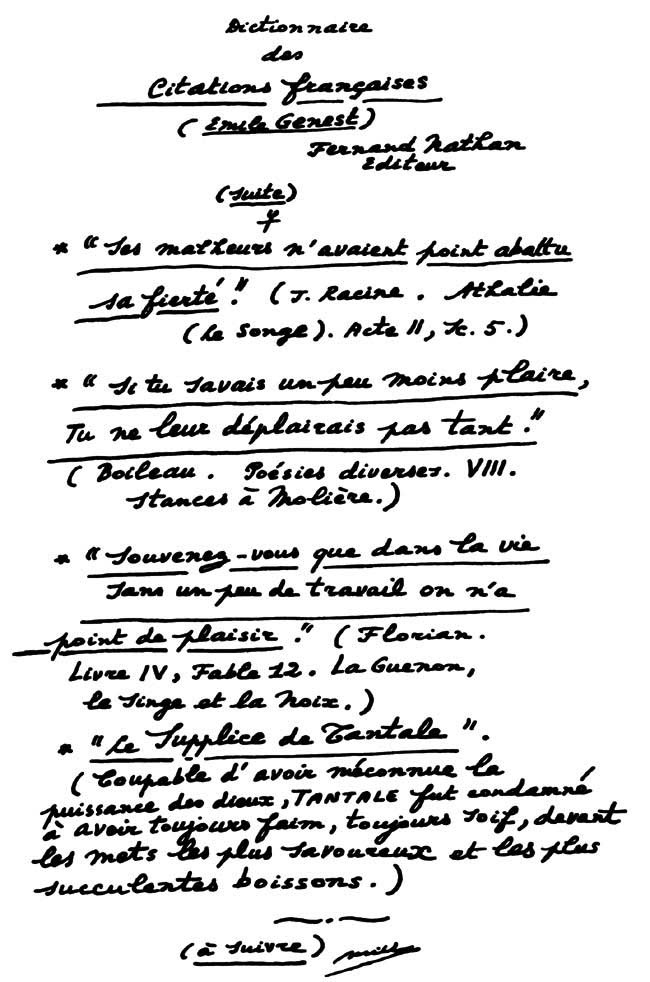 Dictionnaire
des
Citations françaises
(Emile Genest)
Fernand Nathan
Editeur
(suite)
* "Ses malheurs n'avaient point abattu
sa fierté." (J. Racine. Athalie
(Le Songe). Acte II, Sc. 5.)
* "Si tu savais un peu moins plaire,
Tu ne leur déplairais pas tant."
(Boileau. Poésies diverses. VIII.
Stances à Molière.)
* "Souvenez-vous que dans la vie
Sans un peu de travail on n'a
point de plaisir." (Florian.
Livre IV, Fable 12. La Guenon,
le Singe et la Noix.)
* "Le Supplice de Tantale".
(Coupable d'avoir méconnue la
puissance des dieux, TANTALE fut condamné
à avoir toujours faim, toujours soif, devant
les mets les plus savoureux et les plus
succulentes boissons.)
(à suivre)